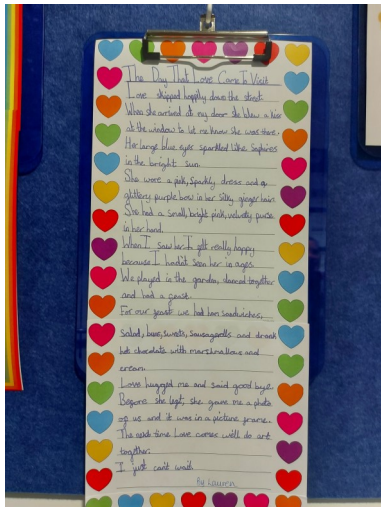 The Day That Love Came To Visit
Love skipped happily down the street.
When she arrived at my door she blew a kiss
at the window to let me know she was there.
Her large blue eyes sparkled like saphires
in the bright sun.
She wore a pink, sparkly dress and a
glittery purple bow in her silky ginger hair.
She had a small, bright pink, velvety purse
in her hand.
When I saw her I felt really happy
because I hadn't seen her in ages.
We played in the garden, danced together
and had a feast.
For our feast we had ham sandwiches,
salad, buns, sweets, sausagerolls and drank
hot chocolate with marshmallows and
cream.
Love hugged me and said good bye.
Before she left, she gave me a photo
of us and it was in a picture frame.
The next time Love comes will do art
together.
I just can't wait.
By Lauren